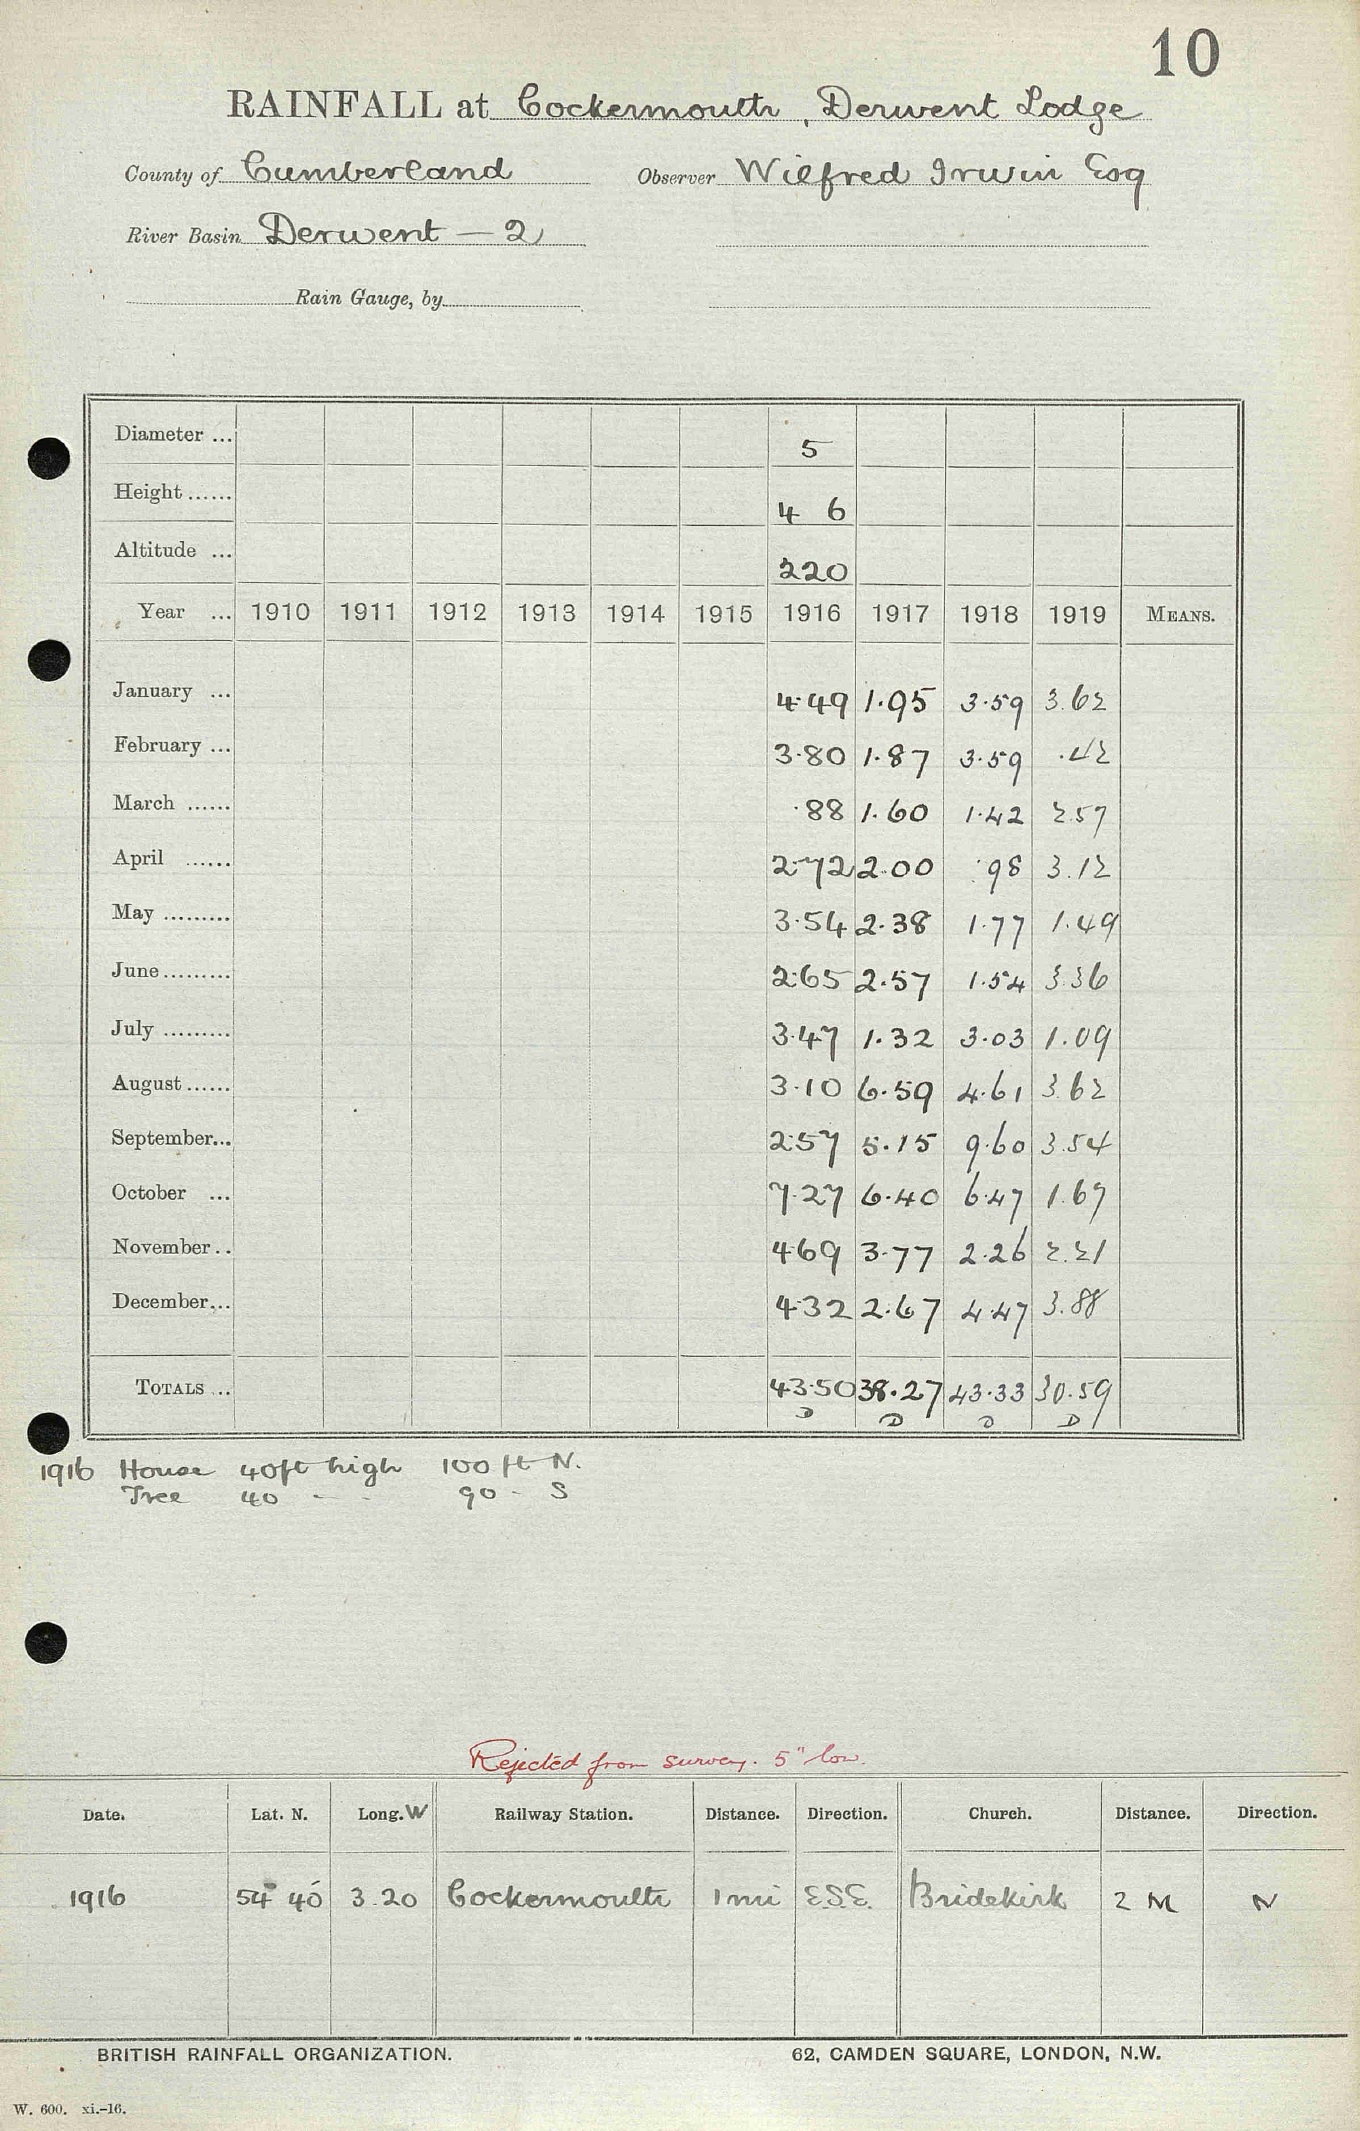 10
RAINFALL at Cockermouth, Derwent Lodge
County of Cumberland Observer Wilfred Irwin Esq
River Basin Derwent — 2
Rain Gauge, by
Diameter ... 5
Height ...... 4 6
Altitude ... 220
Year ... 1910 1911 1912 1913 1914 1915 1916 1917 1918 1919 MEANS.
January ... 4·49 1·95 3·59 3.62
February ... 3·80 1·87 3·59 .42
March ...... ·88 1.60 1·42 2.57
April ...... 2·72 2.00 ·98 3.12
May ......... 3·54 2·38 1·77 1.49
June ......... 2·65 2·57 1·54 3.36
July ......... 3·47 1·32 3·03 1.09
August ...... 3·10 6·59 4·61 3.62
September... 2·57 5·15 9·60 3.54
October ... 7·27 6·40 6·47 1.67
November .. 4·69 3·77 2·26 2.21
December... 4·32 2·67 4·47 3.88
TOTALS ... 43·50 38·27 43·33 30.59
D D D D
1916 House 40ft high 100 ft N.
Tree 40 - - 90 - S
Rejected from survey. 5" low.
Date. Lat. N. Long. W Railway Station. Distance. Direction. Church. Distance. Direction.
1916 54° 40' 3.20 Cockermouth 1 mi E.S.E. Bridekirk 2 M N
BRITISH RAINFALL ORGANIZATION. 62, CAMDEN SQUARE, LONDON, N.W.
W. 600. xi.-16.